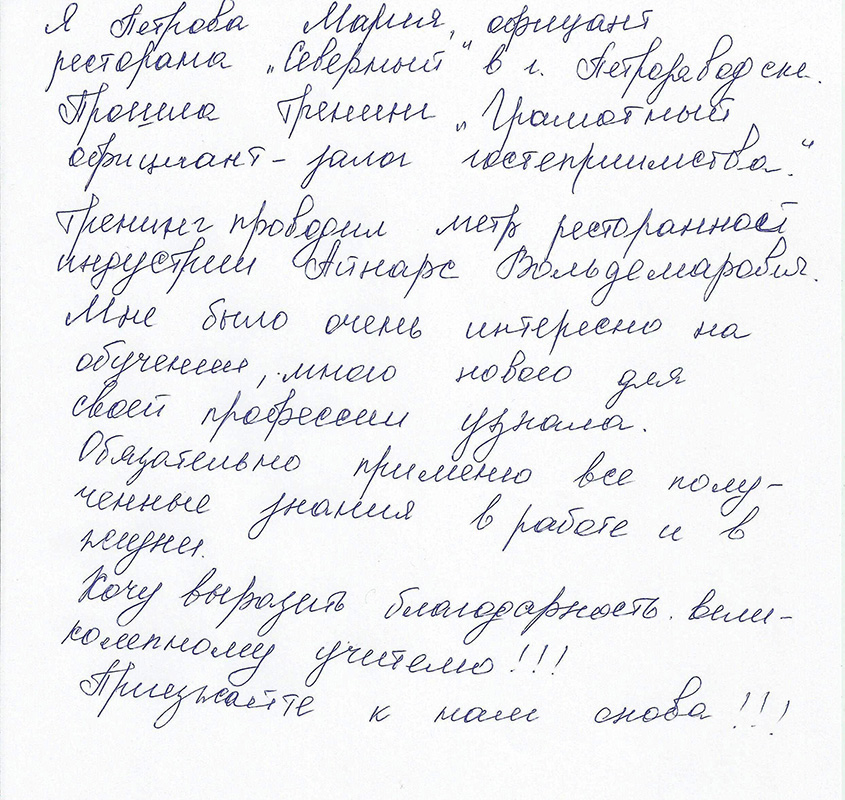 Я Петрова Мария, официант
ресторана „Северный“ в г. Петрозаводске.
Прошла тренинг „Грамотный
официант – залог гостеприимства.“
Тренинг проводил метр ресторанной
индустрии Айнарс Вольдемарович.
Мне было очень интересно на
обучении, много нового для
своей профессии узнала.
Обязательно применю все полу-
ченные знания в работе и в
жизни.
Хочу выразить благодарность вели-
колепному учителю!!!
Приезжайте к нам снова!!!